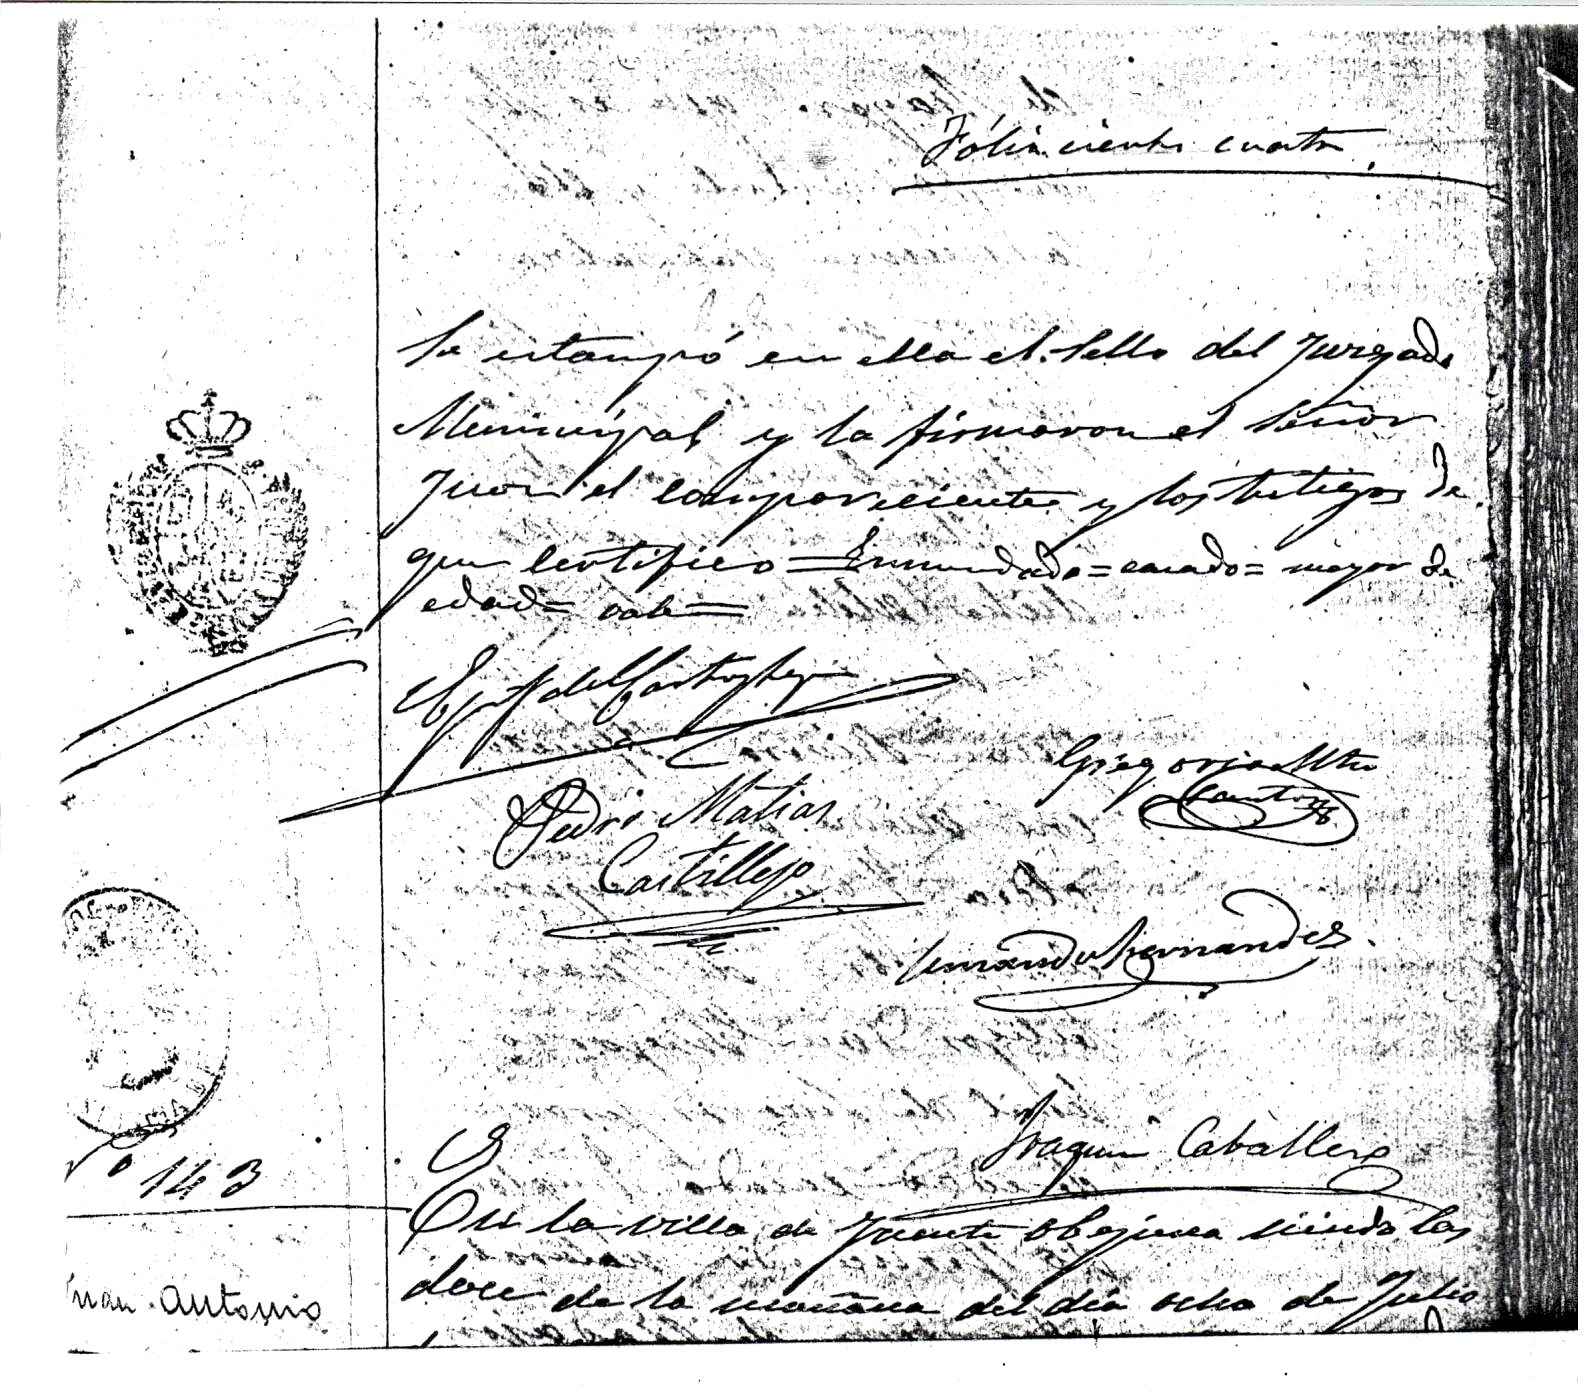 Fólio ciento cuatro
se estampó en ella el sello del Juzgado
Municipal y la firmaron el Señor
Juez el compareciente y los testigos de
que certifico = Enmendado = casado = mayor de
edad = vale =
Gregorio Mtro
Santos
Pedro Matias
Castillejo
Hernandez
Joaquin Caballero
Nº 143
En la villa de Fuente Obejuna siendo las
doce de la mañana del dia ocho de Julio
Juan Antonio